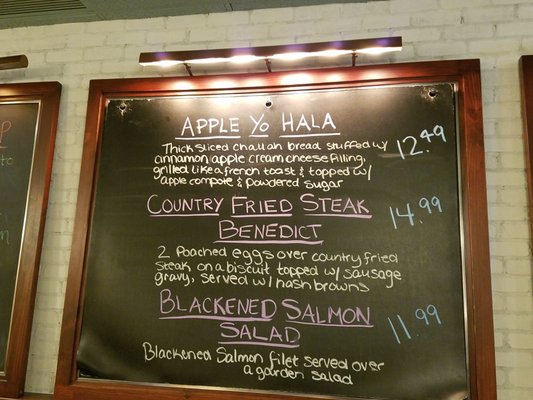 APPLE YO HALA
Thick sliced challah bread stuffed w/
cinnamon apple cream cheese filling,
grilled like a french toast & topped w/
apple compote & powdered sugar
12.49
COUNTRY FRIED STEAK
BENEDICT
14.99
2 Poached eggs over country fried
steak on a biscuit topped w/ sausage
gravy, served w/ hash browns
BLACKENED SALMON
SALAD
11.99
Blackened Salmon filet served over
a garden salad